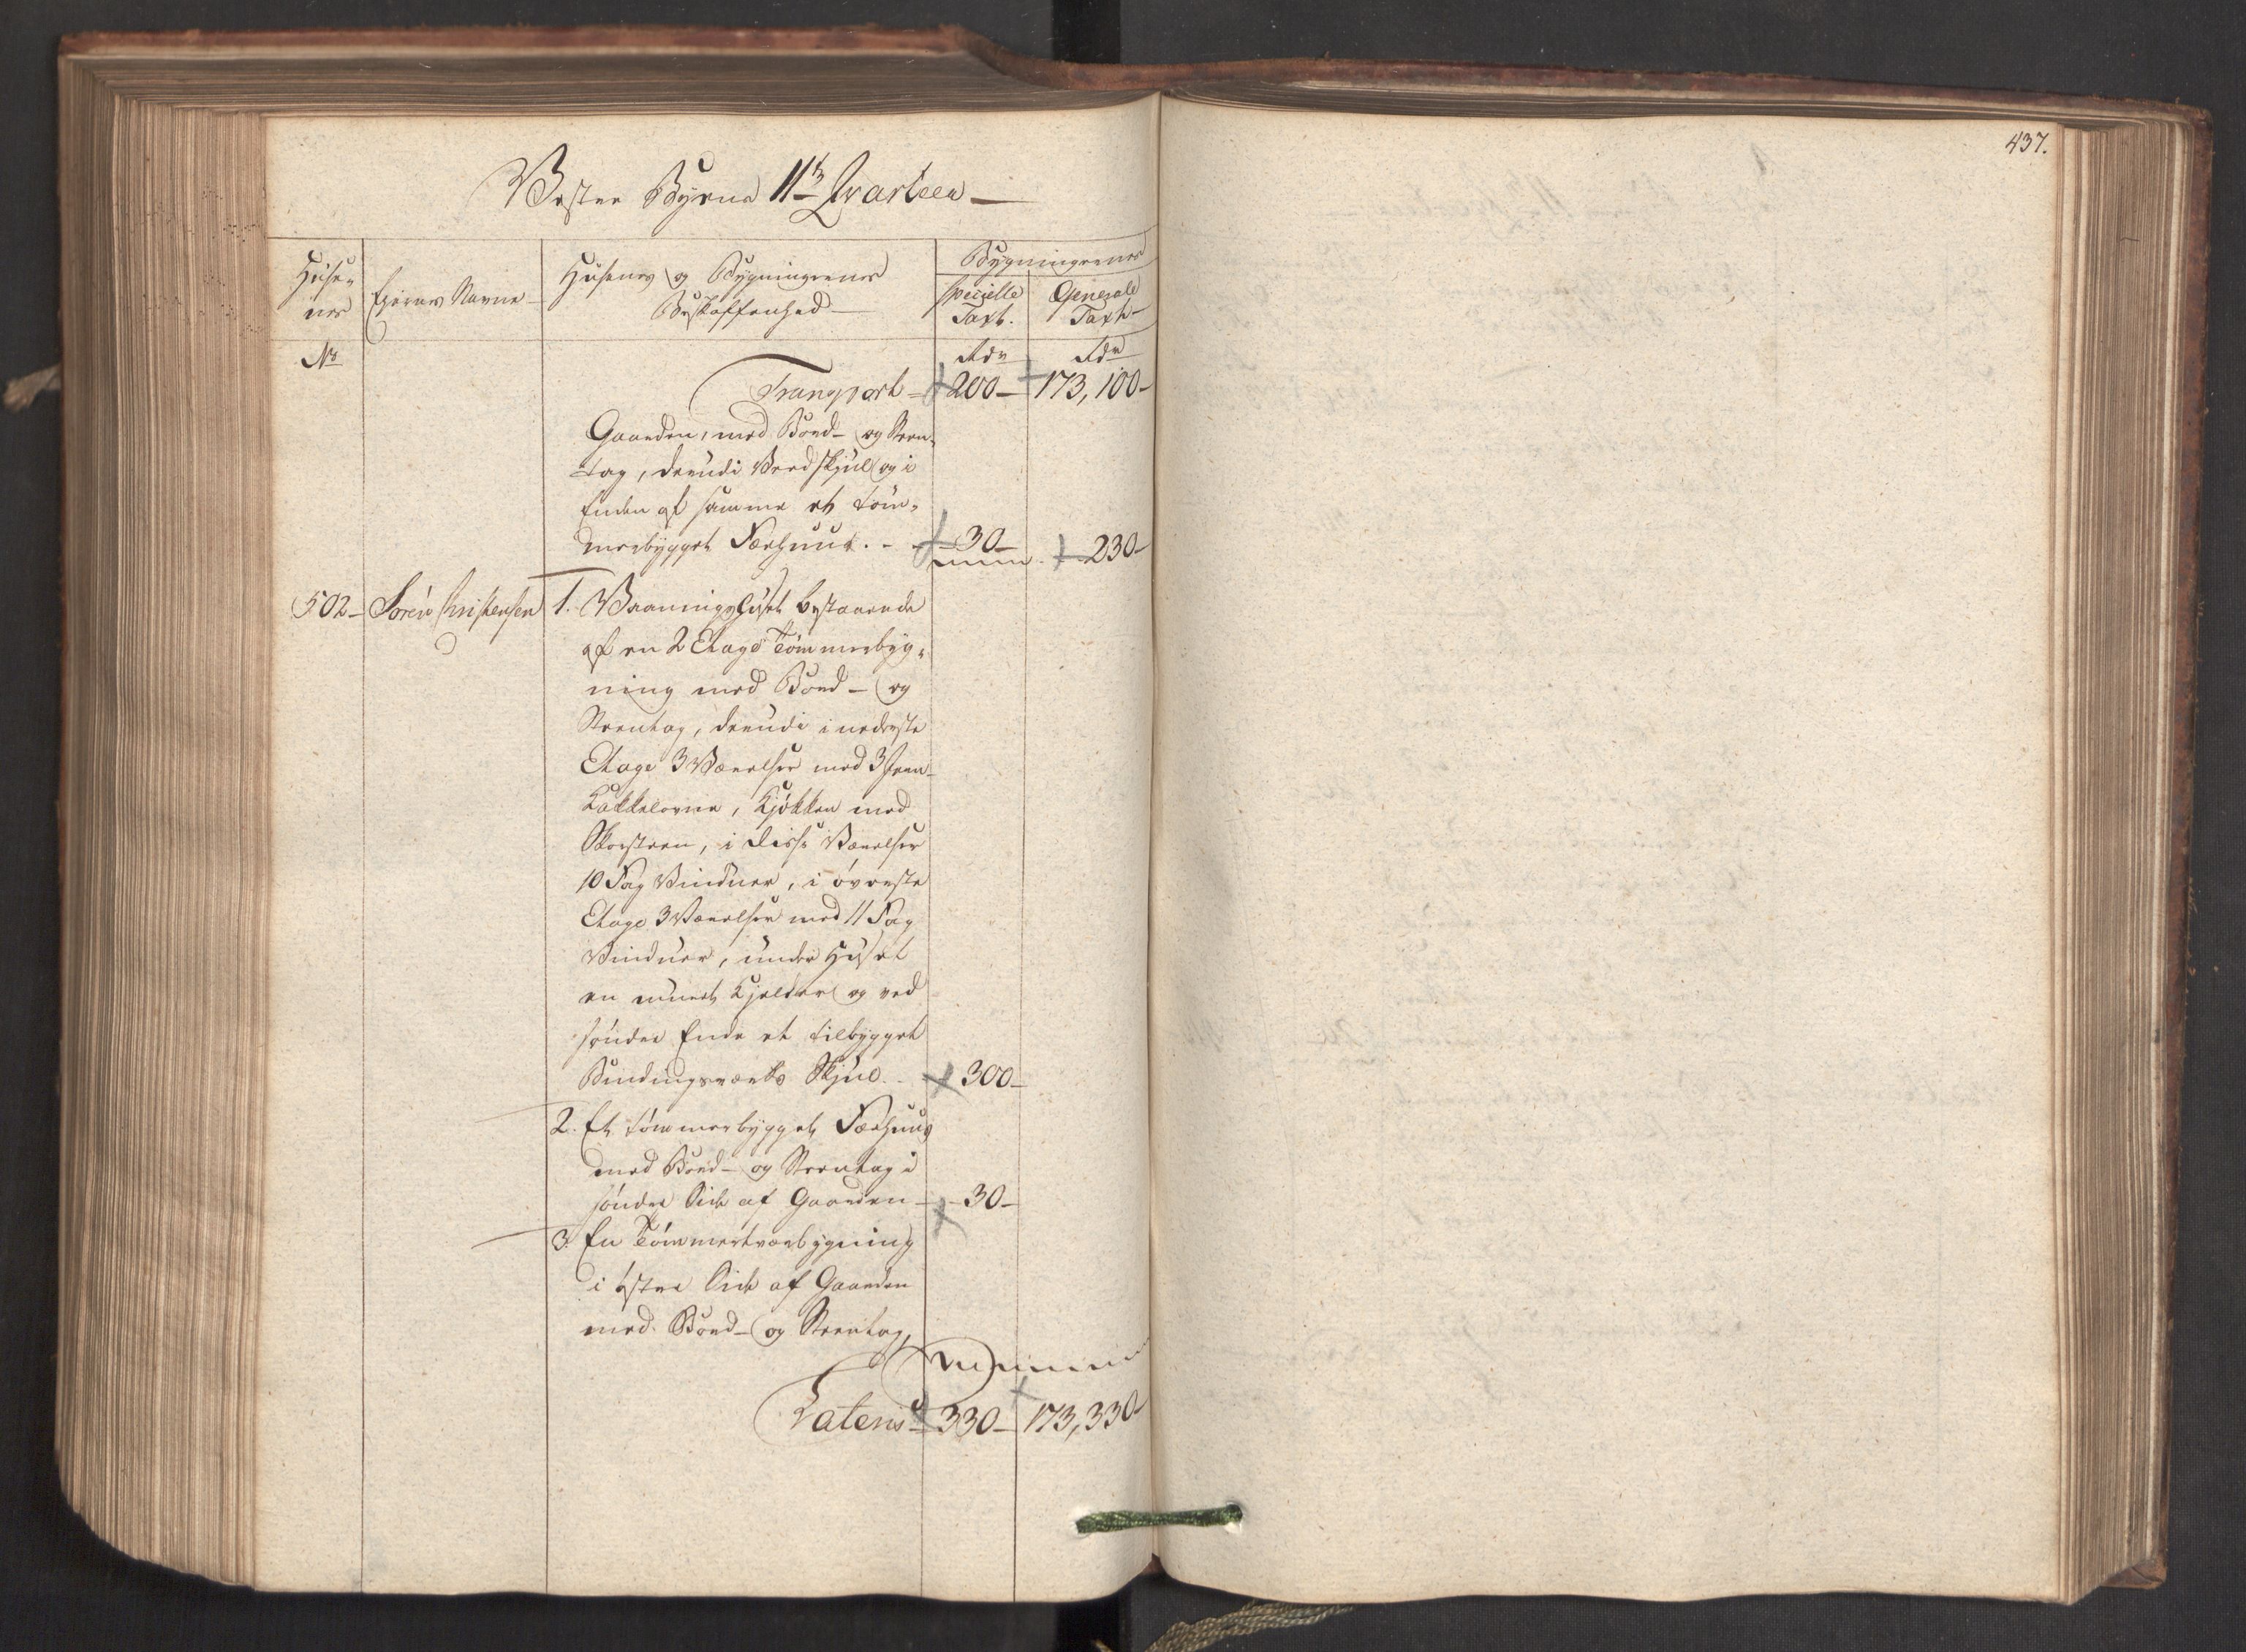 437.
Vester Byens 11te Qvarteer
Husenes Eiernes Navne Husenes og Bygningernes Beskaffenhed Bygningernes
specielle Taxt. Generale Taxt
No Rdr Rdr
Transport 200 173,100
Gaarden, med Bord- og Steen-
tag, deerudi Veedskjul og i
Enden af samme et töm-
merbygget Fæehuus. 30 230
502 Sören Christensen 1. Vaaningshuset bestaaende
af en 2 Etage Tømmerbyg-
ning med Bord- og
Steentag, deerudi i nederste
Etage 3 Værelser med 3 Jern-
Kakkelovne, Kjøkken med
Skorsteen, i disse Værelser
10 Fag Vinduer, i øverste
Etage 3 Værelser med 11 Fag
Vinduer, under Huset
en muret Kjelder og ved
søndre Ende et tilbygget
Bindingsværks Skjul 300
2. Et tömmerbygget Fæehuus
med Bord- og Steentag i
søndre Side af Gaarden 30
3. En Tömmertværbygning
i østre Side af Gaarden
med Bord- og Steentag,
Lateris 330 173,330